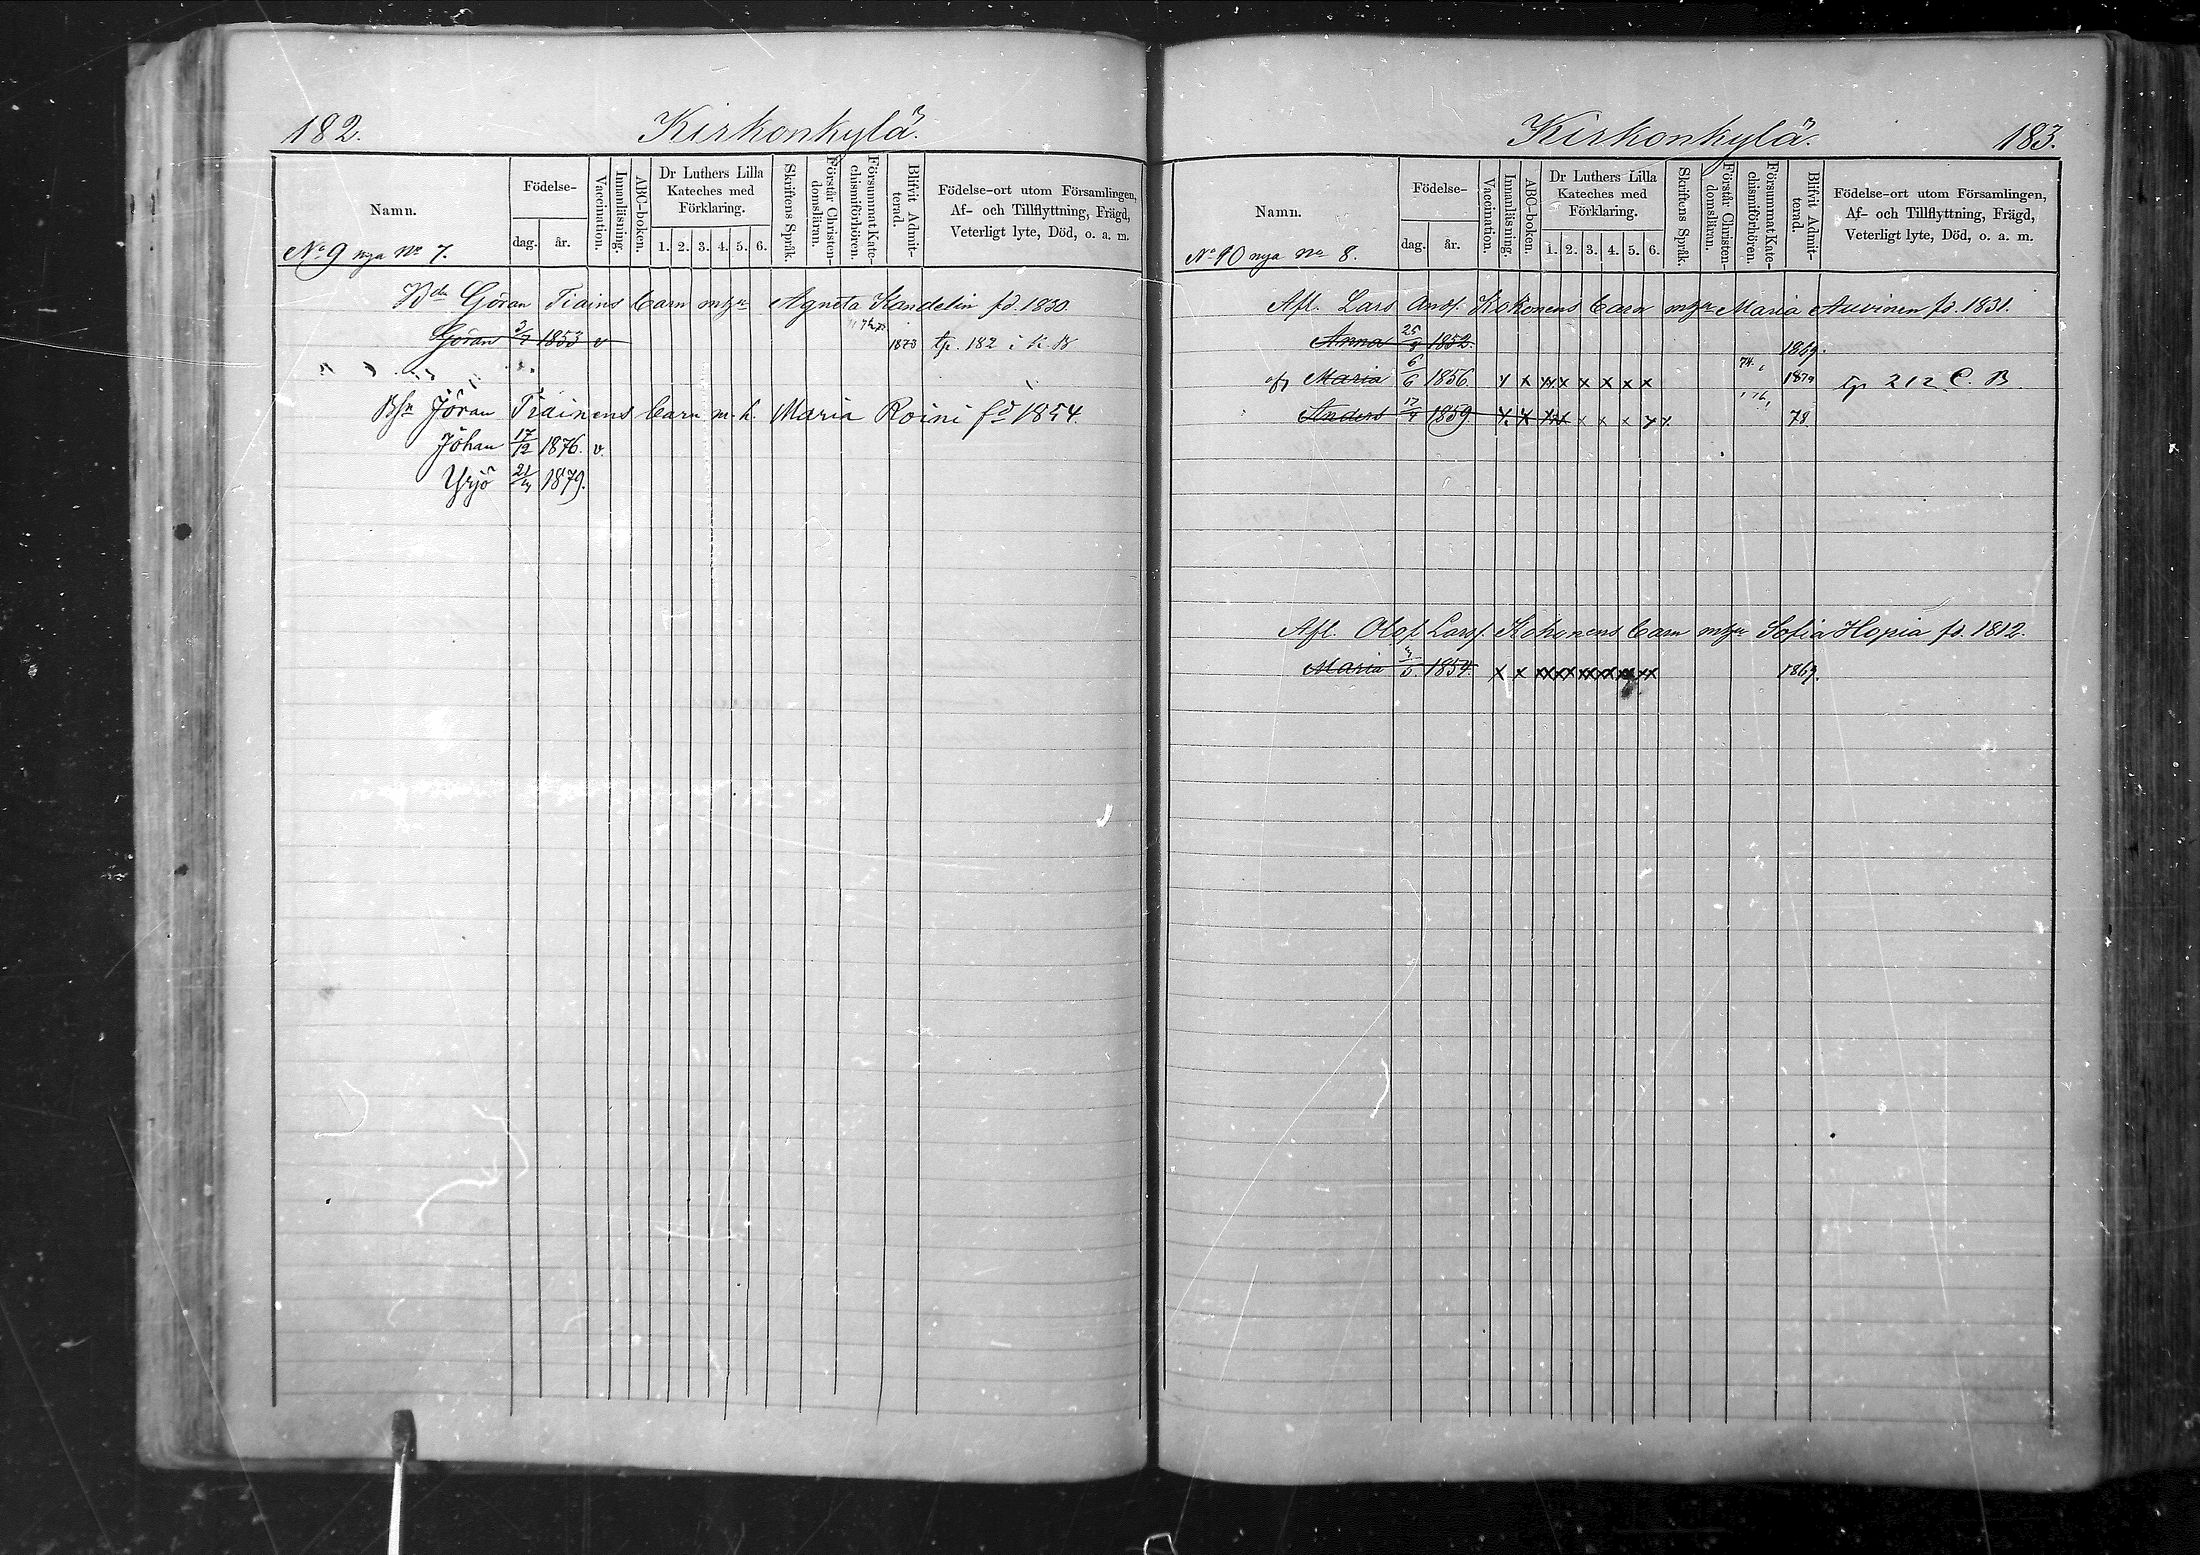 182.
Kirkonkylä.
Namn.
Födelse-
dag.
år.
Vaccination.
Innanläsning.
ABC-boken.
Dr Luthers Lilla
Kateches med
Förklaring.
1. 2. 3. 4. 5. 6.
Skriftens Språk.
Förstår Christen-
domsläran.
Försummat Kate-
chismiförhören.
Blifvit Admit-
terad.
Födelse-ort utom Församlingen,
Af- och Tillflyttning, Frägd,
Veterligt lyte, Död, o. a. m.
No 9 nya No 7.
Göran Tiains barn Agneta Kandelin fd. 1830.
Göran 3/7 1853 v 1873 tp. 182 i K B
Jöran Tiainens barn m. h. Maria Roini fd 1854.
Johan 17/12 1876. v.
Yrjö 21/4 1879.
Kirkonkylä.
183.
Namn.
Födelse-
dag.
år.
Vaccination.
Innanläsning.
ABC-boken.
Dr Luthers Lilla
Kateches med
Förklaring.
1. 2. 3. 4. 5. 6.
Skriftens Språk.
Förstår Christen-
domsläran.
Försummat Kate-
chismiförhören.
Blifvit Admit-
terad.
Födelse-ort utom Församlingen,
Af- och Tillflyttning, Frägd,
Veterligt lyte, Död, o. a. m.
No 10 nya No 8.
Afl. Lars Kokonens barn Maria Auvinen fd. 1831.
Anna 25/9 1852. 1869.
Maria 6/6 1856. x x xx x x x x x 74. tp 212 C. B.
Anders 12/4 1859 x x xx x x x 78
Afl. Olof Larsf. Kokonens barn Sofia Hopia fd. 1812.
Maria 1854. x x xx xx xx xx xx xx 1869.